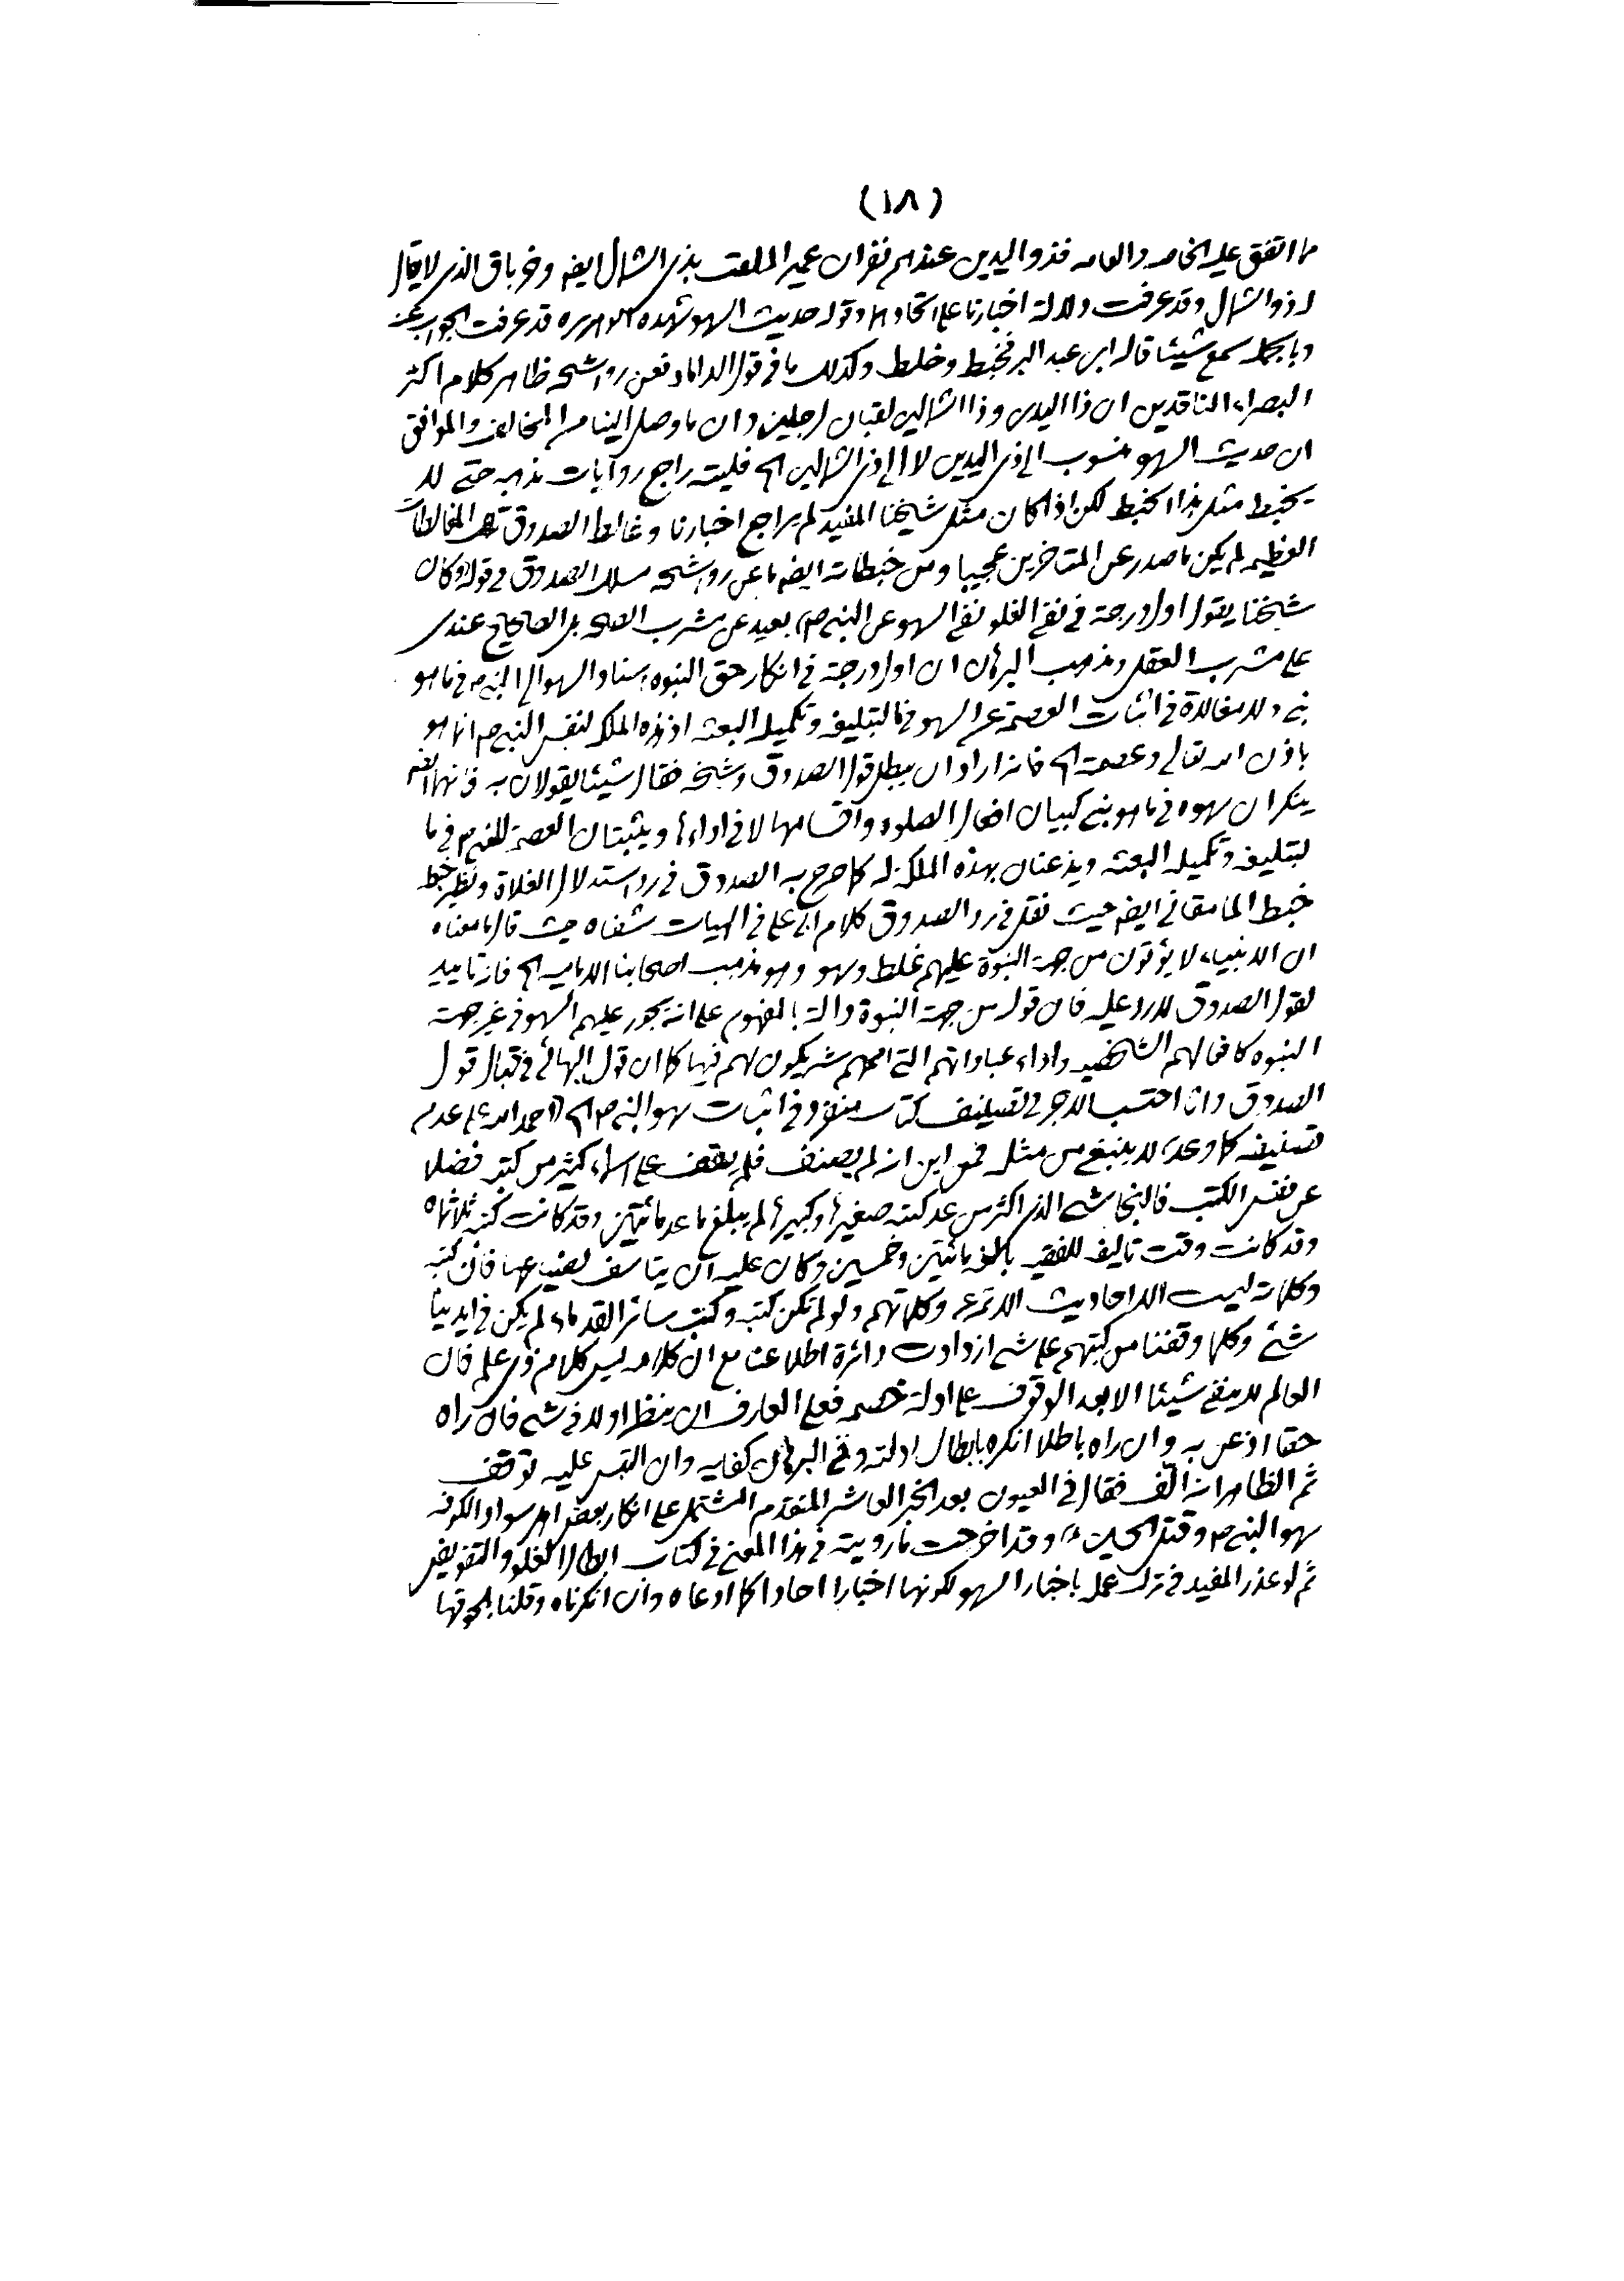 (١٨)
ما اتفق عليه الخاصه والعامه فذو اليدين عندهم نفران عمير الملقب بذى الشمال ايضه وخرباق الذى لا يقال
له ذو الشمال وقد عرفت دلالة اخبارنا على اتحادهما وقوله حديث السهو شهده ابو هريره قد عرفت الجواب عنه
وبالجمله سمع شيئا قاله ابن عبد البر فخبط وخلط وكذلك ما فى قول الداماد فعن رواشحه ظاهر كلام اكثر
البصراء الناقدين ان ذا اليدين وذا الشمالين لقبان لرجلين وان ما وصل الينا من المخالف والموافق
ان حديث السهو منسوب الى ذى اليدين لا الى ذى الشمالين الخ فليته راجع روايات مذهبه حتى لا
يخبط مثل هذا الخبط لكن اذا كان مثل شيخنا المفيد لم يراجع اخبارنا وغالط الصدوق تلك المغالطات
العظيمه لم يكن ما صدر عن المتاخرين عجيبا ومن خبطاته ايضه ما عن رواشحه مسلك الصدوق فى قوله وكان
شيخنا يقول اول درجة فى نفى الغلو نفى السهو عن النبى ص، بعيد عن مشرب الصحه بل الصحيح عندى
على مشرب العقل ومذهب البرهان ان اول درجة فى انكار حق النبوه اسناد السهو الى النبى ص فى ما هو
نبى ولا مغالاة فى اثبات العصمة عن السهو فى التبليغ وتكميل البعثه اذ هذه الملكه لنفس النبى ص انما هو
باذن الله تعالى وعصمته الخ فانه اراد ان يبطل قول الصدوق وشيخه فقال شيئا يقولان به فانهما ايضه
ينكران سهوه فى ما هو نبى كبيان افعال الصلوه واقسامها لا فى اداءها ويثبتان العصمة للنبى ص فى ما
لتبليغ وتكميل البعثه ويذعنان بهذه الملكه له كما صرح به الصدوق فى رد استدلال الغلاة ونظير خبطه
خبط المامقانى ايضه حيث نقل فى رد الصدوق كلام ابى على فى الهيات شفاه حيث قال ما معناه
ان الانبياء لا يؤتون من جهة النبوة عليهم غلط وسهو وهو مذهب اصحابنا الاماميه الخ فانه تاييد
لقول الصدوق لا رد عليه فان قوله من جهة النبوة دالة بالمفهوم على انه يجوز عليهم السهو فى غير جهة
النبوه كافعالهم الشخصيه واداء عباداتهم التى اممهم شريكون لهم فيها كما ان قول البهائى فى قبال قول
الصدوق وانا احتسب الاجر فى تصنيف كتاب منفرد فى اثبات سهو النبى ص الخ الحمد لله على عدم
تصنيفه كما وعد، لا ينبغى من مثله فمن اين انه لم يصنف فلم يقف على اسماء كثير من كتبه فضلا
عن نفس الكتب فالنجاشى الذى اكثر من عد كتبه صغيرها وكبيرها لم يبلغ ما عد مائتين وقد كانت كتبه ثلاثماه
وقد كانت وقت تاليف الفقيه بالغه مائتين وخمسين وكان عليه ان يتاسف لضياعها فان كتبه
وكلماته ليست الا احاديث الائمة ع وكلماتهم ولو لم تكن كتبه وكتب سائر القدماء لم يكن فى ايدينا
شئ وكلما وقفنا من كتبهم على شى ازدادت دائرة اطلاعنا مع ان كلامه ليس كلام ذى علم فان
العالم لا ينفى شيئا الا بعد الوقوف على ادلة خصمه فعلى العارف ان ينظر اولا فى شى فان راه
حقا اذعن به وان راه باطلا انكره بابطال ادلته وفى البرهان كفايه وان التبس عليه توقف
ثم الظاهر انه الّف فقال فى العيون بعد الخبر العاشر المتقدم المشتمل على انكار بعض اهل سواد الكوفه
سهو النبى ص وقتل الحسين ع، وقد اخرجت ما رويته فى هذا المعنى فى كتاب ابطال الغلو والتفويض
ثم لو عذر المفيد فى ترك عمله باخبار السهو لكونها اخبارا احادا كما ادعاه وان انكرناه وقلنا بلحوقها